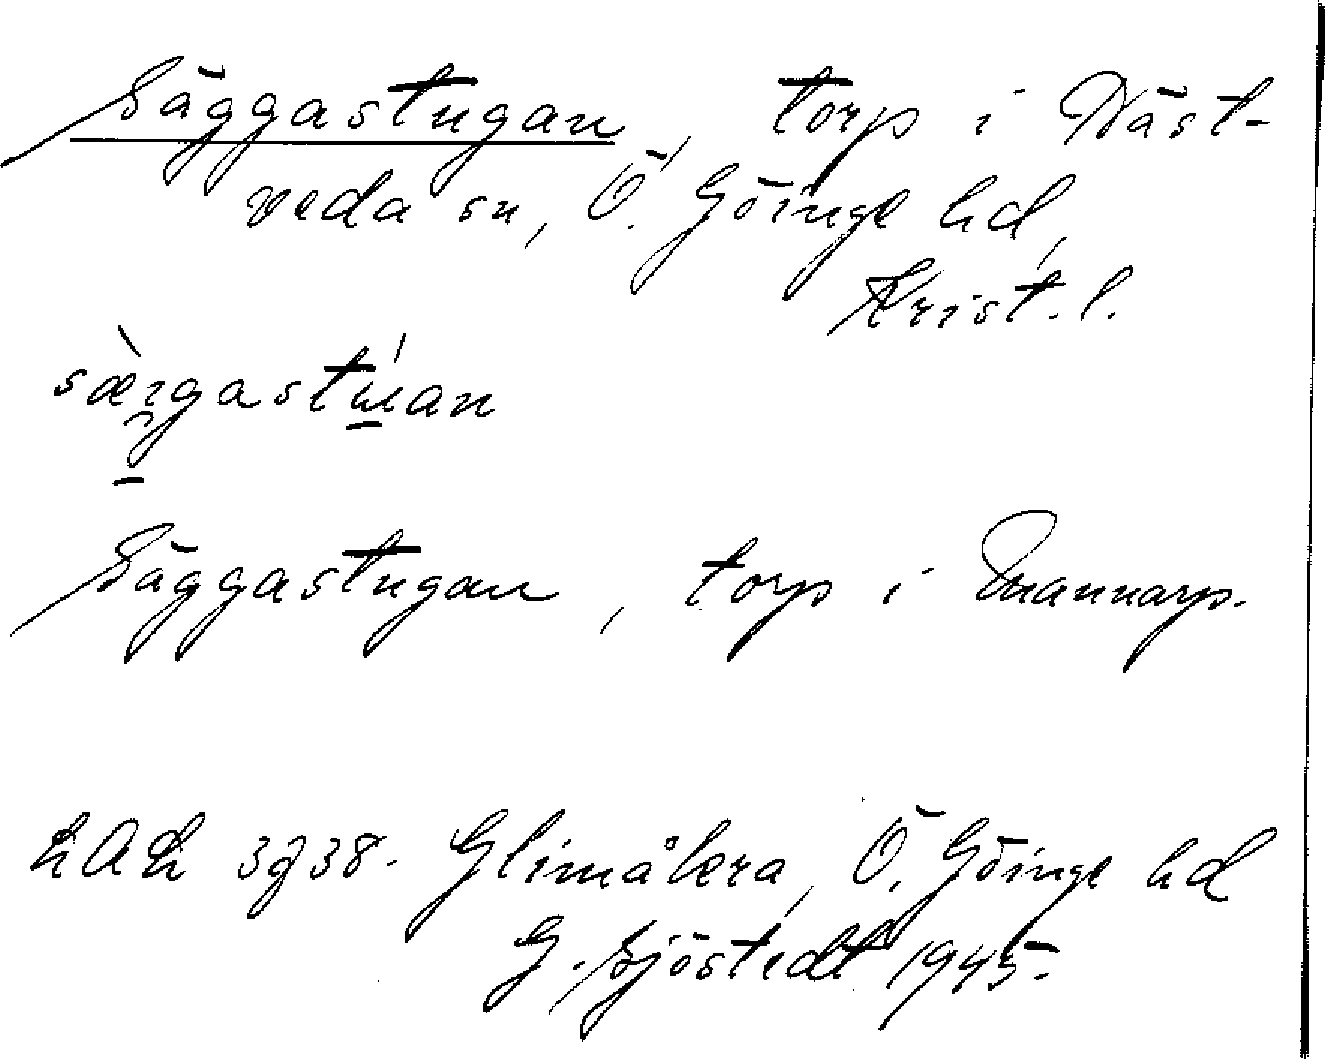 Säggastugan, torp i Väst-
veda sn, Ö. Göinge hd,
Krist. l.
Säggastugan, torp i Mannarp.
LAL 3938. Glimåkra, Ö. Göinge hd
G. Sjöstedt 1945.